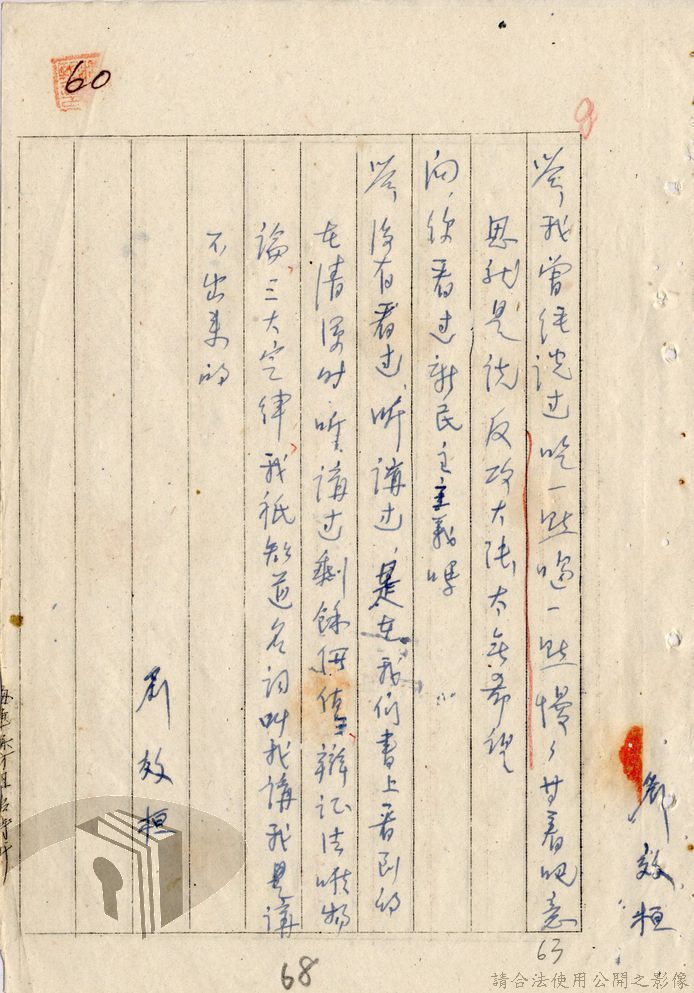 60
8
答、我曾经说过吃一点喝一点慢々甘着吧意
思就是说反攻大陆太无希望
问、你看过新民主主義嗎
答、没有看过、听講过、是在我们書上看到的
在清溪时听講过剩餘価值、辩证法唯物
論三大定律我祇知道名词叫我講我是講
不出来的
劉效桓
劉效桓
63
68
請合法使用公開之影像